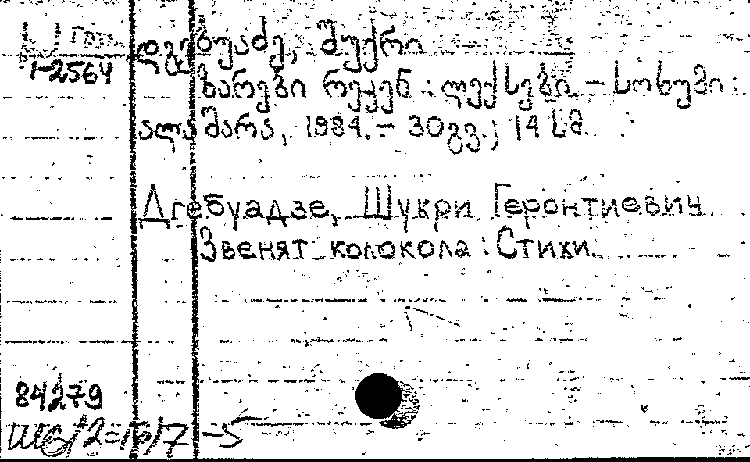 1-2564
დგებუაძე, შუქრი
ზარები რეკენ : ლექსები. – სოხუმი :
ალაშარა, 1984. – 30გვ.; 14 სმ.
Дгебуадзе, Шукри Геронтиевич
Звенят колокола : Стихи.
84279